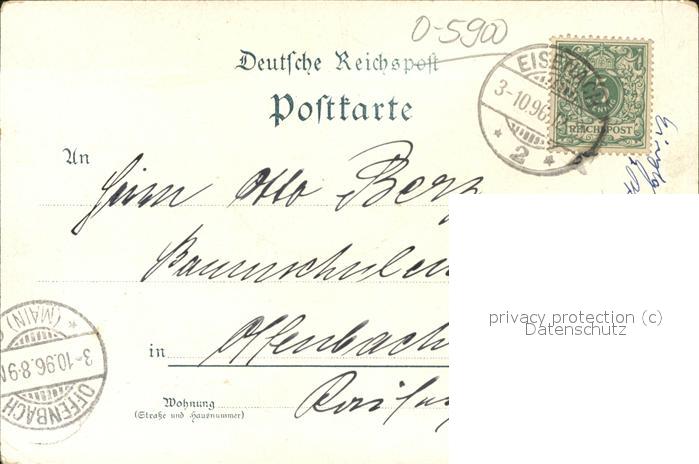 0-5900
Deutsche Reichspost
Postkarte
EISENACH
3-10.96
* 2 *
5
REICHSPOST
An
Herrn Otto Berg
Baumschulen
in Offenbach
Wohnung
(Straße und Hausnummer)
OFFENBACH
* (MAIN) *
3-10.96.8-9N
privacy protection (c)
Datenschutz